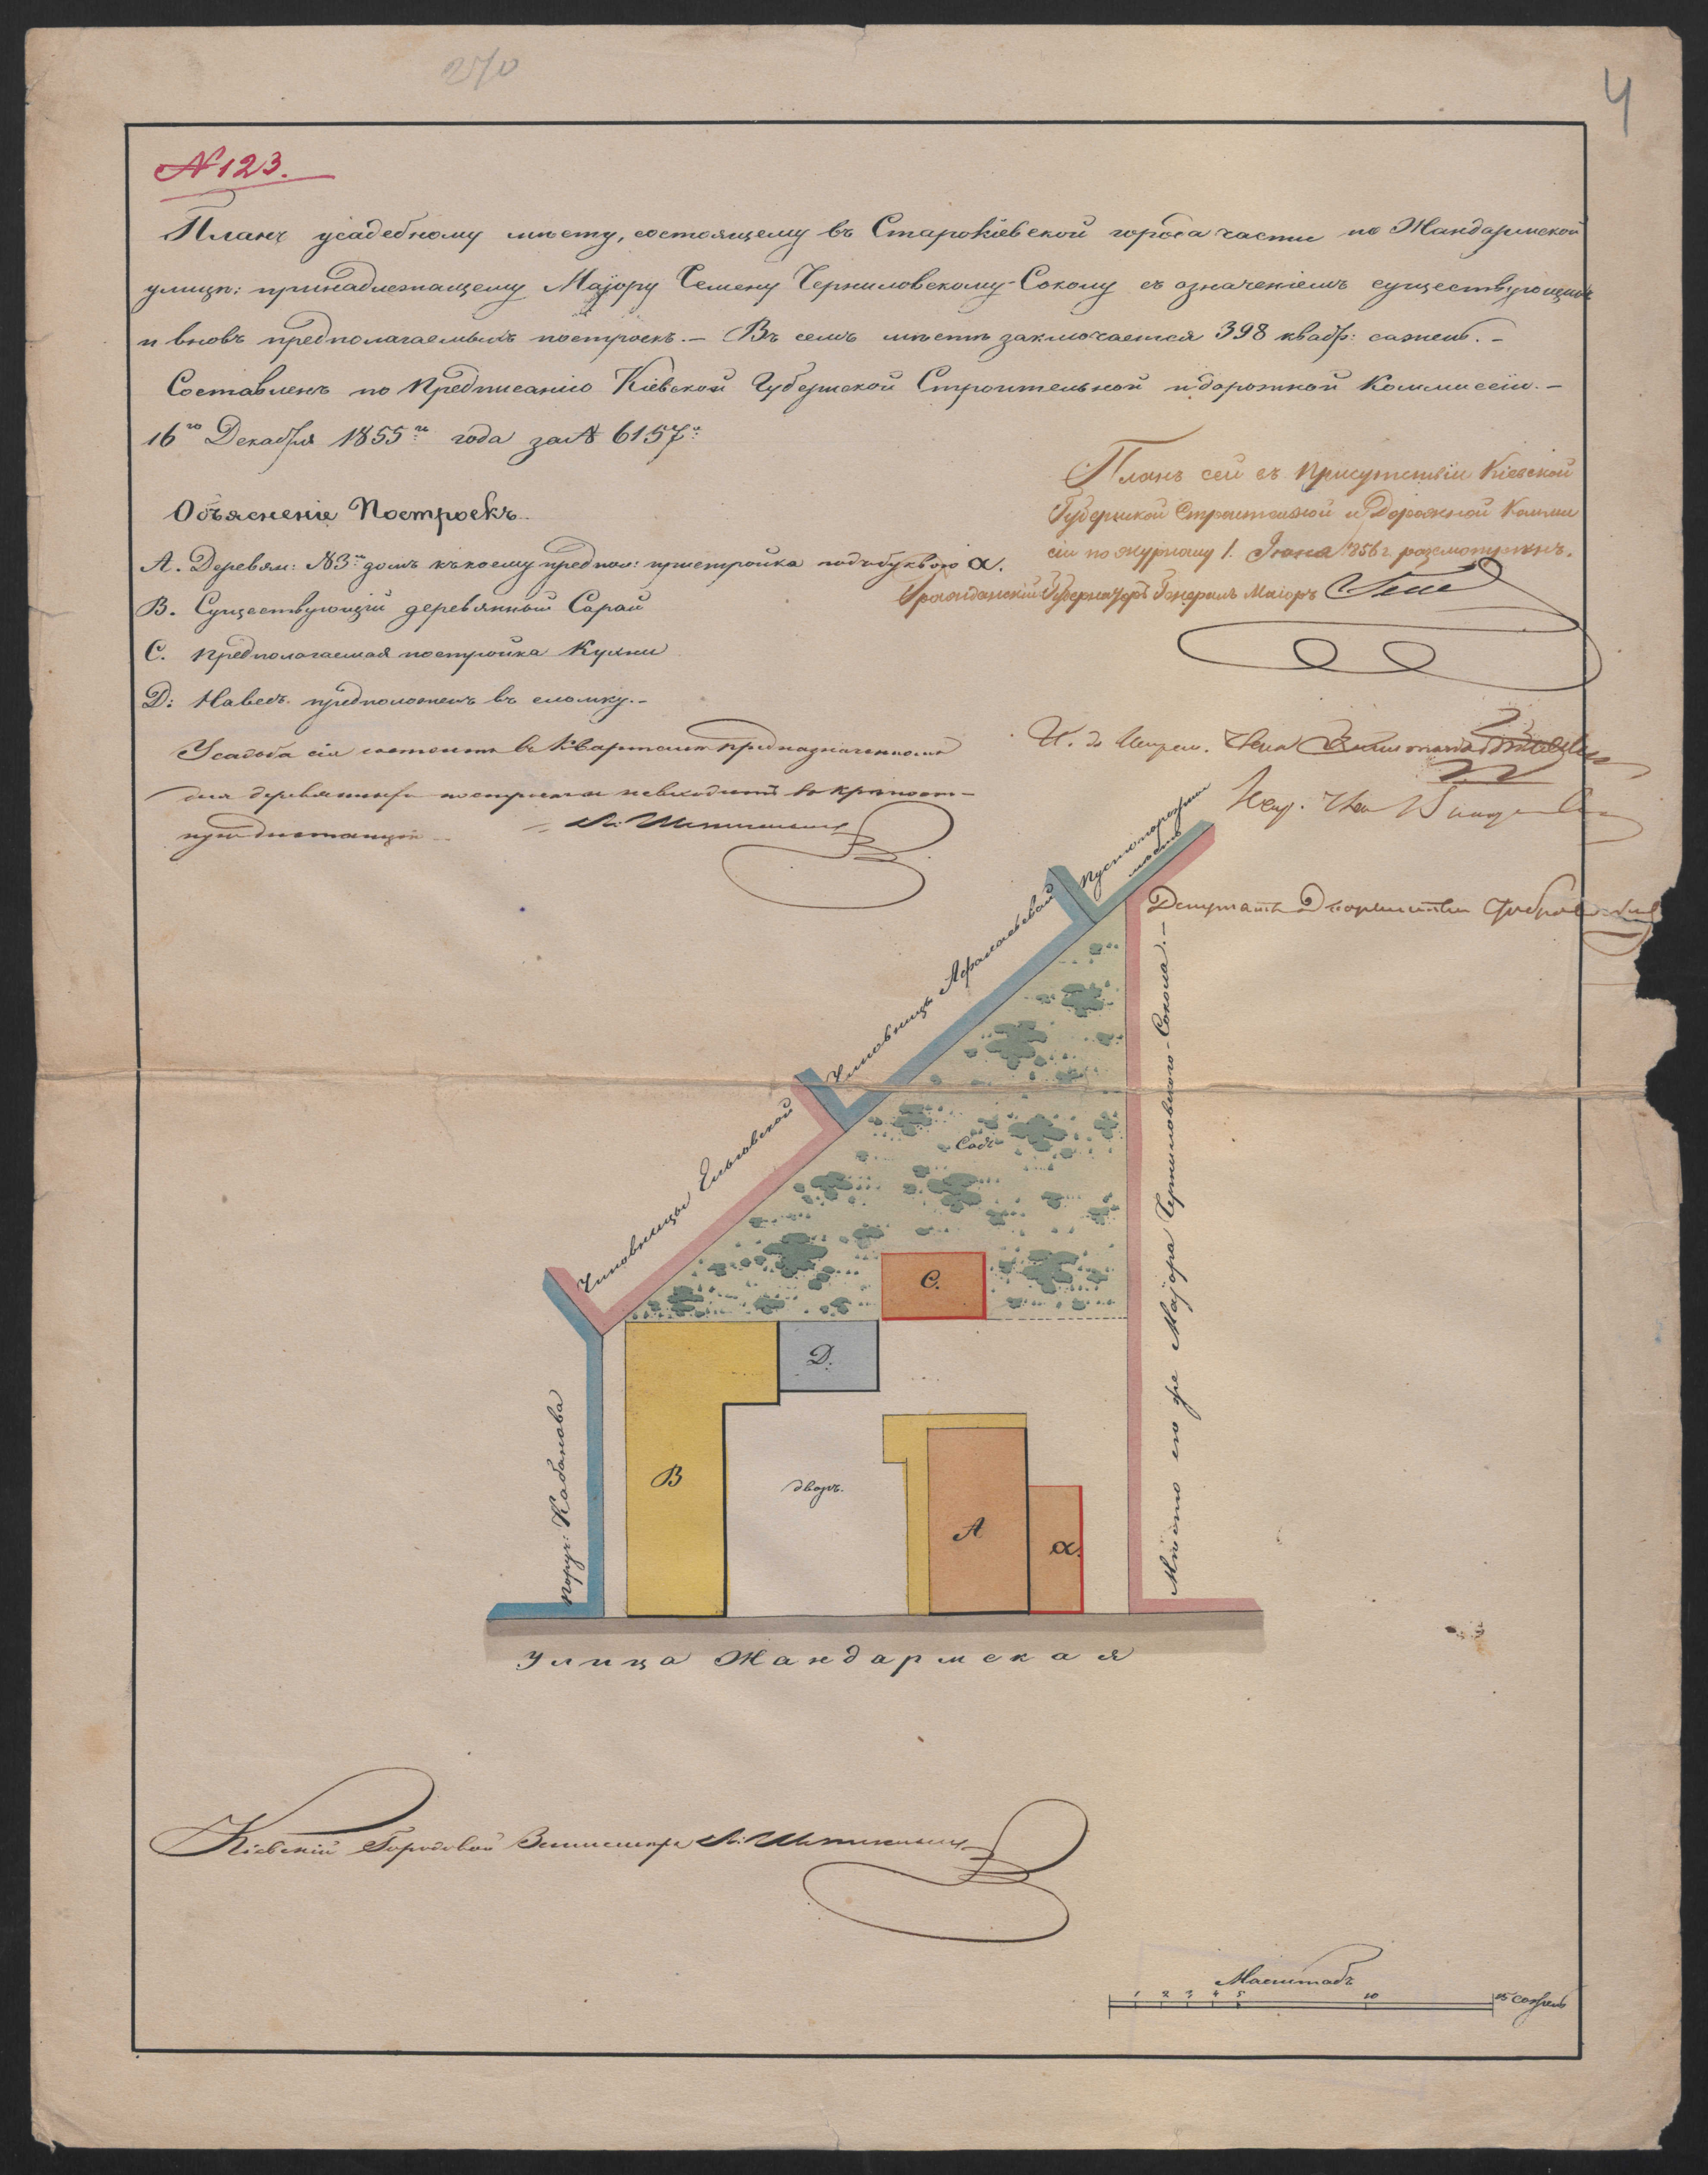 270
4
№ 123.
Планъ усадебному мѣсту, состоящему въ Старокіевской города части по Жандармской
улицѣ: принадлежащему Маіору Семену Черниловскому-Соколу съ означеніемъ существующихъ
и вновь предполагаемыхъ построекъ. – Въ семъ мѣстѣ заключается 398 квадр: сажень. –
Составленъ по Предписанію Кіевской Губернской Строительной и дорожной Коммиссіи. –
16го Декабря 1855го года за № 6157:
Объясненіе Построекъ.
А. Деревян: № 3й домъ къ коему предпол: пристройка подъ буквою α.
В. Существующій деревянный Сарай
С. предполагаемая постройка Кухни
D: Навесъ предположенъ въ сломку. –
Усадьба сія состоитъ въ Кварталѣ предназначенномъ
для деревянныхъ построекъ и невходитъ въ крѣпост–
ную дистанцію –
Планъ сей въ Присутствіи Кіевской
Губернской Строительной и Дорожной Комми
сіи по журналу 1. Іюня 1856 г. разсмотрѣнъ.
Гражданскій Губернаторъ Генералъ Маіоръ Гессе
И. д. Члена
Депутатъ Дворянства
Пустопорожнее
мѣсто
Чиновницы
Чиновницы
поруч: Кабанова
Мѣсто его же Маіора Черниловского-Сокола. –
Садъ
С.
D.
В
дворъ.
А
α.
Улица Жандармская
Кіевскій Городовой Землемѣръ
Масштабъ
1 2 3 4 5 10 15 сажень